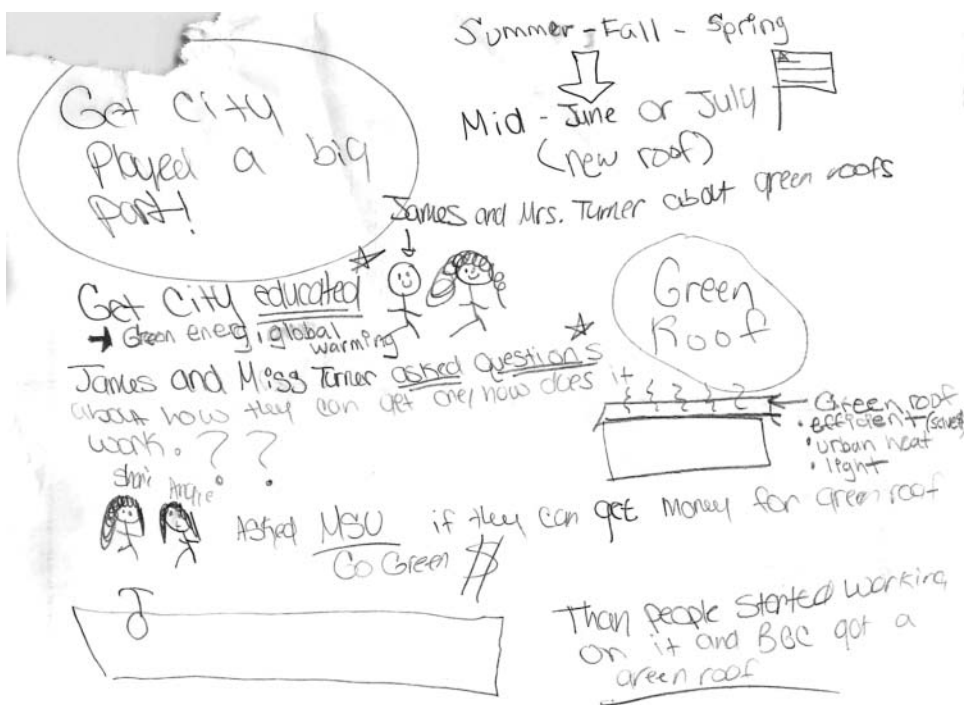 Get City
Played a big
part!
Summer - Fall - Spring
Mid - June or July
(new roof)
James and Mrs. Turner about green roofs
Get City educated
Green energ, global
warming
James and Miss Turner asked questions
about how they can get one/how does it
work. ? ?
Green
Roof
Green roof
• efficient (saves)
• urban heat
• light
Shari Angie
Asked MSU if they can get money for green roof
Go Green $
Than people started working
on it and BGC got a
green roof